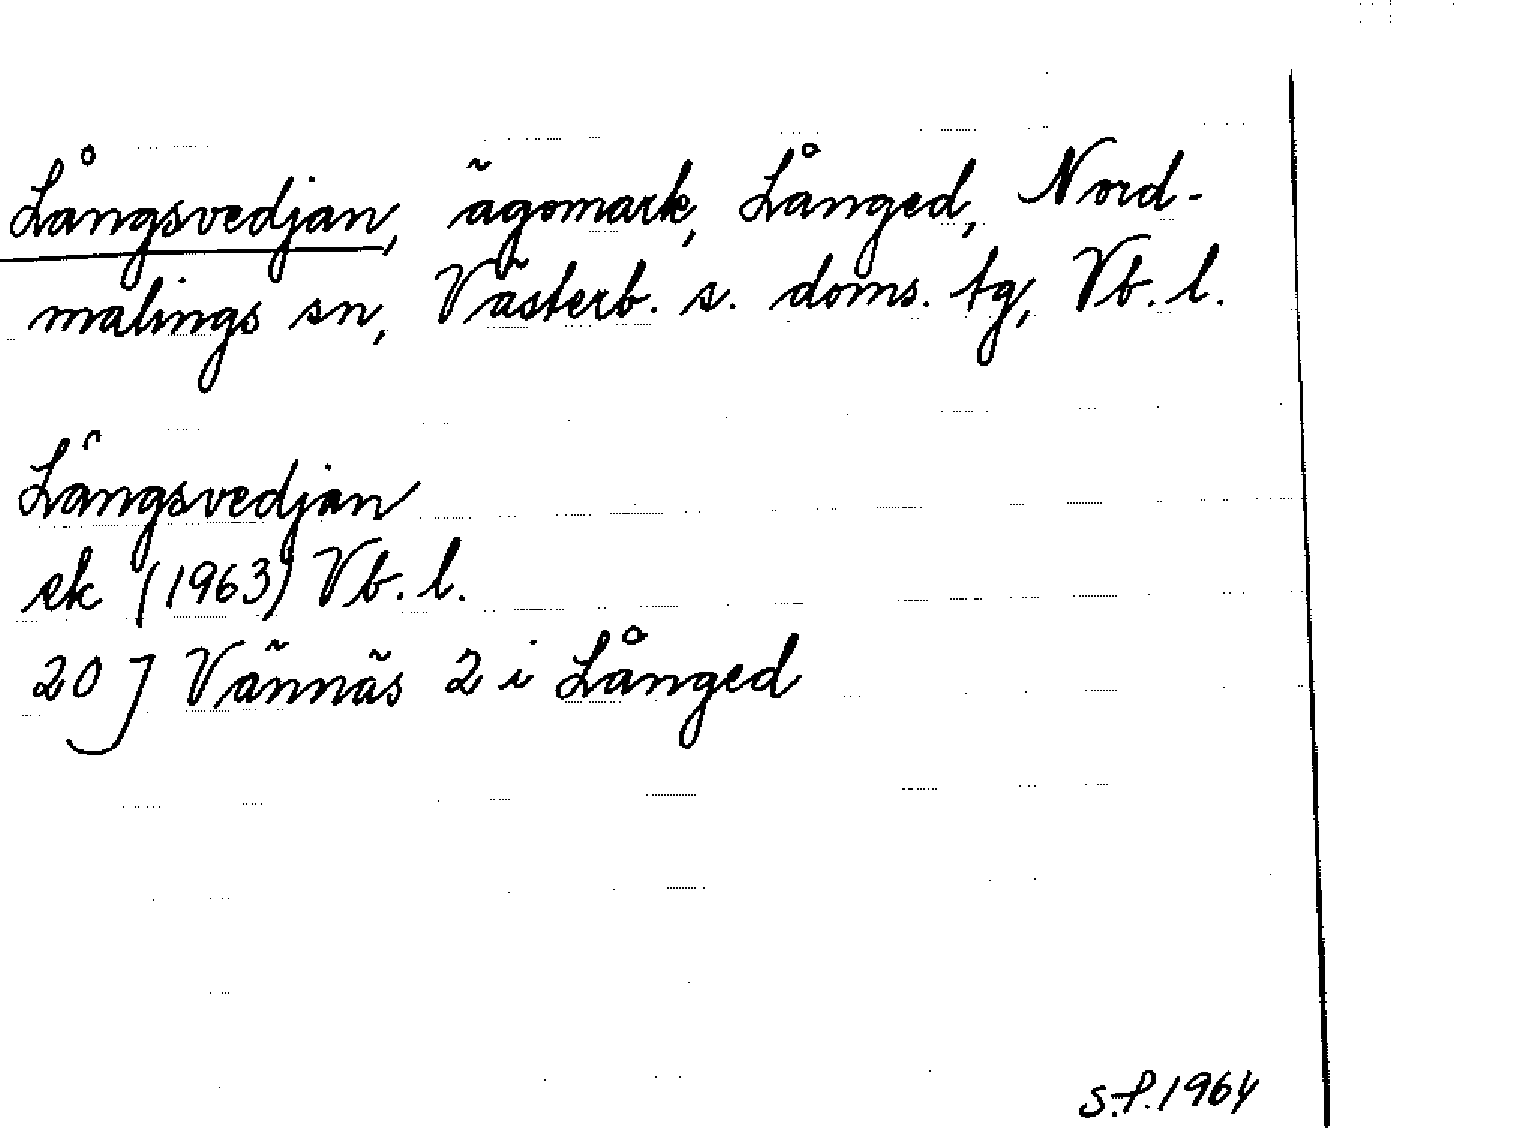 Långsvedjan, ägomark, Långed, Nord-
malings sn, Västerb. s. doms. tg, Vb. l.
Långsvedjan
ek (1963) Vb. l.
20 J Vännäs 2 i Långed
S.F. 1964